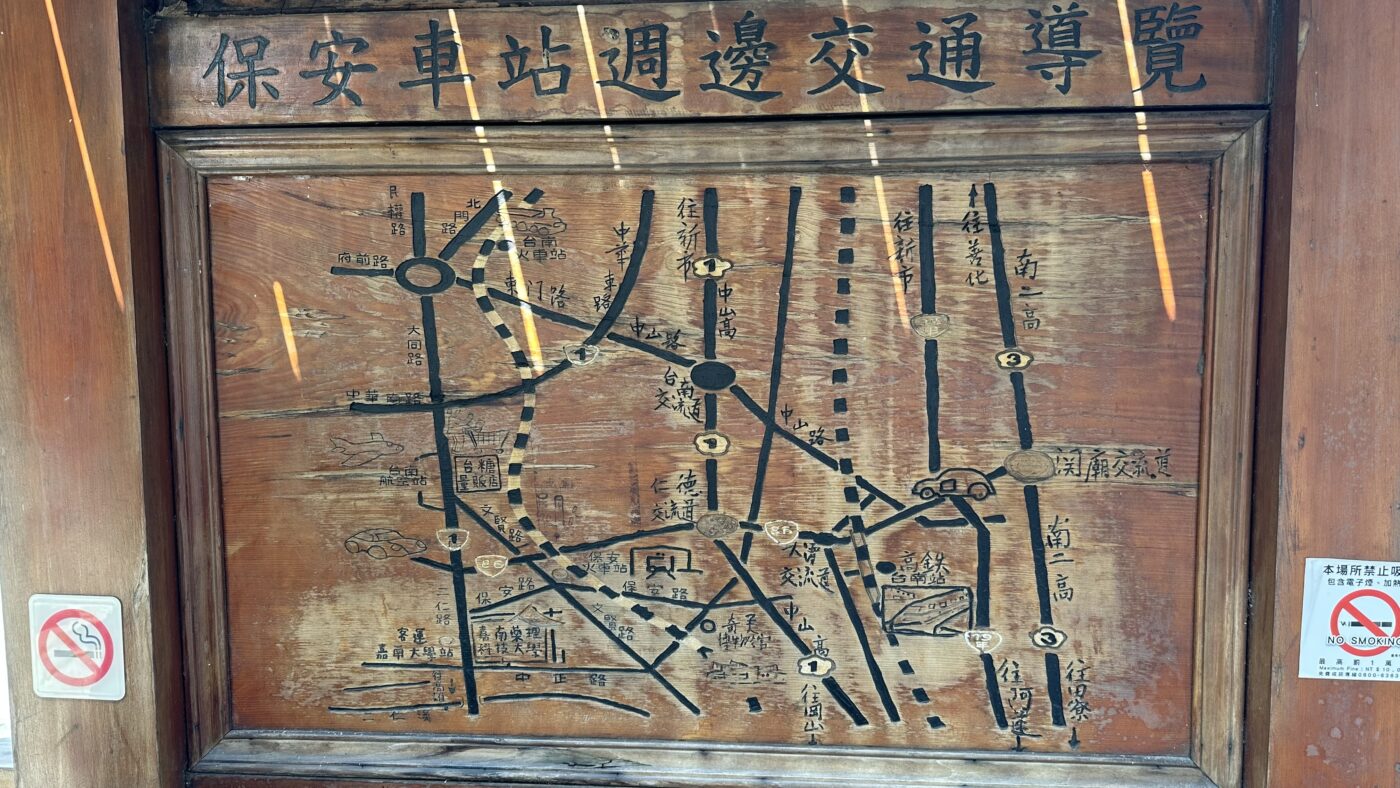 保安車站週邊交通導覽
民權路
北門路
台南火車站
府前路
東門路
中華東路
往新市
1
中山高
往新市
往善化
南二高
3
大同路
中山路
1
台南交流道
中華南路
1
中山路
台南航空站
台糖量販店
仁德交流道
関廟交流道
文賢路
1
86
86
大潭交流道
南二高
保安火車站
高鉄台南站
保安路
保安路
二仁路
文賢路
奇美博物館
中山高
3
客運
嘉南大學站
嘉南藥理科技大學
1
中正路
往岡山
往阿蓮
往田寮
二仁溪
NO SMOKING
本場所禁止吸
包含電子煙、加熱
最高罰1萬
Maximum Fine: NT$10,0